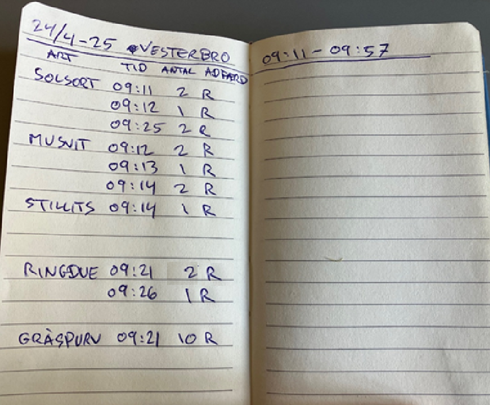 24/4-25 VESTERBRO
ART TID ANTAL ADFÆRD
SOLSORT 09:11 2 R
09:12 1 R
09:25 2 R
MUSVIT 09:12 2 R
09:13 1 R
09:14 2 R
STILLITS 09:14 1 R
RINGDUE 09:21 2 R
09:26 1 R
GRÅSPURV 09:21 10 R
09:11-09:57